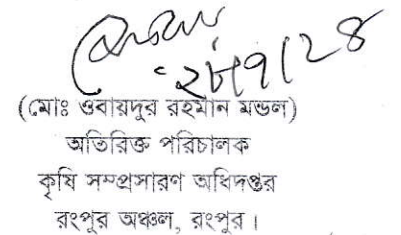 ২৮/৭/২৪
(মোঃ ওবায়দুর রহমান মন্ডল)
অতিরিক্ত পরিচালক
কৃষি সম্প্রসারণ অধিদপ্তর
রংপুর অঞ্চল, রংপুর।